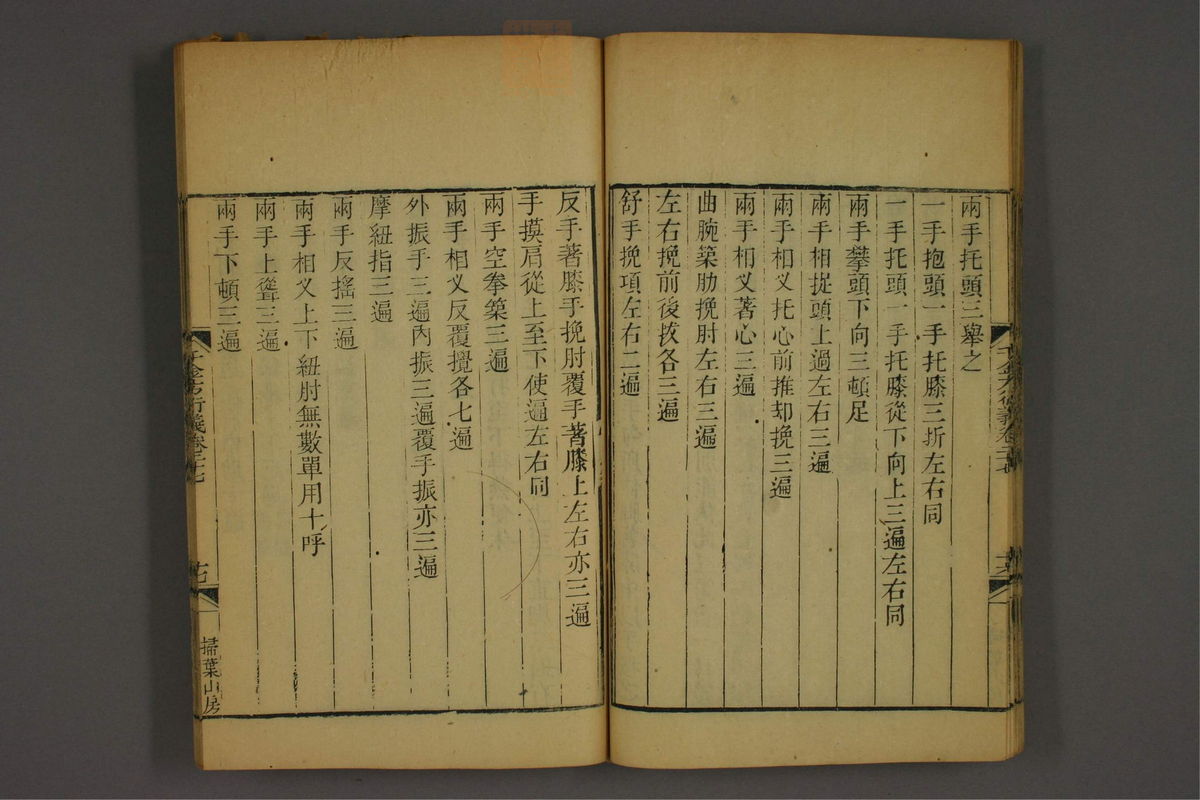 兩手托頭三舉之
一手抱頭一手托膝三折左右同
一手托頭一手托膝從下向上三遍左右同
兩手攀頭下向三頓足
兩手相捉頭上過左右三遍
兩手相义托心前推却挽三遍
兩手相义著心三遍
曲腕築肋挽肘左右三遍
左右挽前後拔各三遍
舒手挽項左右二遍
反手著膝手挽肘覆手著膝上左右亦三遍
手摸肩從上至下使遍左右同
兩手空拳築三遍
兩手相义反覆攪各七遍
外振手三遍內振三遍覆手振亦三遍
摩紐指三遍
兩手反搖三遍
兩手相义上下紐肘無數單用十呼
兩手上聳三遍
兩手下頓三遍
千金方衍義卷
千金方衍義卷二十七
掃葉山房